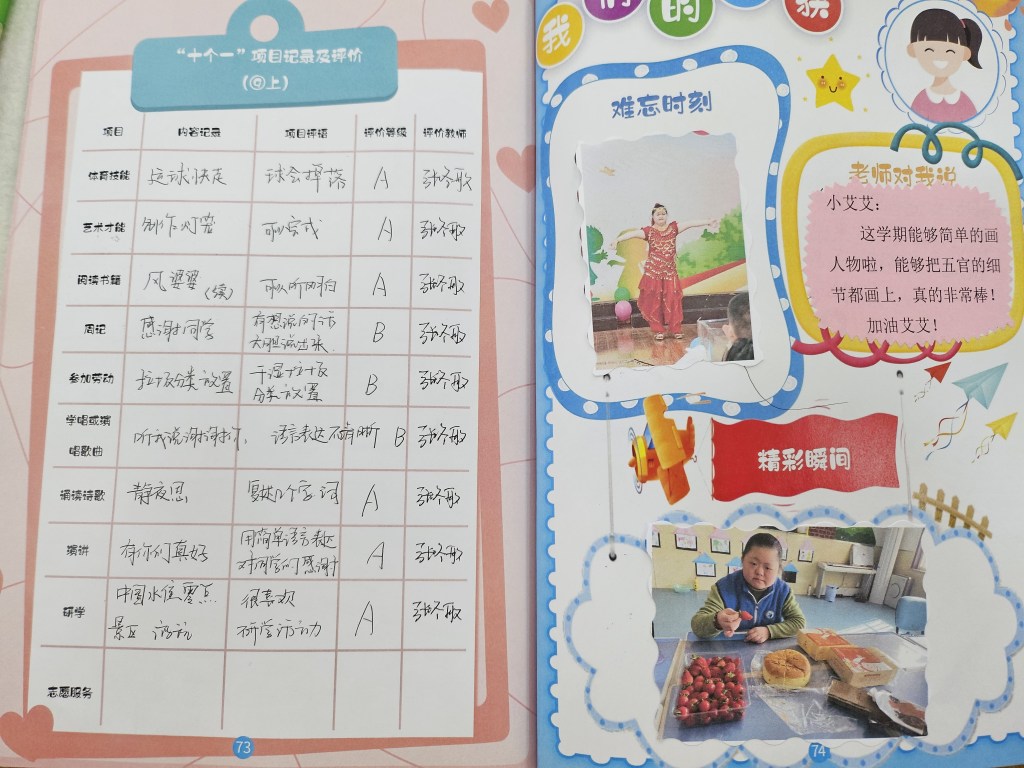 “十个一”项目记录及评价
(㊤上)
项目 内容记录 项目评语 评价等级 评价教师
体育技能 运球快走 球会掉落 A
艺术才能 制作灯笼 可以完成 A
阅读书籍 风婆婆(续) 可以听明白 A
周记 感谢同学 有想说的話 大胆说出来 B
参加劳动 垃圾分类放置 干湿垃圾分类放置 B
学唱或演唱歌曲 听我说谢谢你 语言表达不清晰 B
诵读诗歌 静夜思 复述几个字词 A
演讲 有你们真好 用简单语言表达对同学们感谢 A
研学 中国水位零点景区 很喜欢研学活动 A
志愿服务
73
我们的
获
难忘时刻
老师对我说
小艾艾:
这学期能够简单的画
人物啦，能够把五官的细
节都画上，真的非常棒！
加油艾艾！
精彩瞬间
74